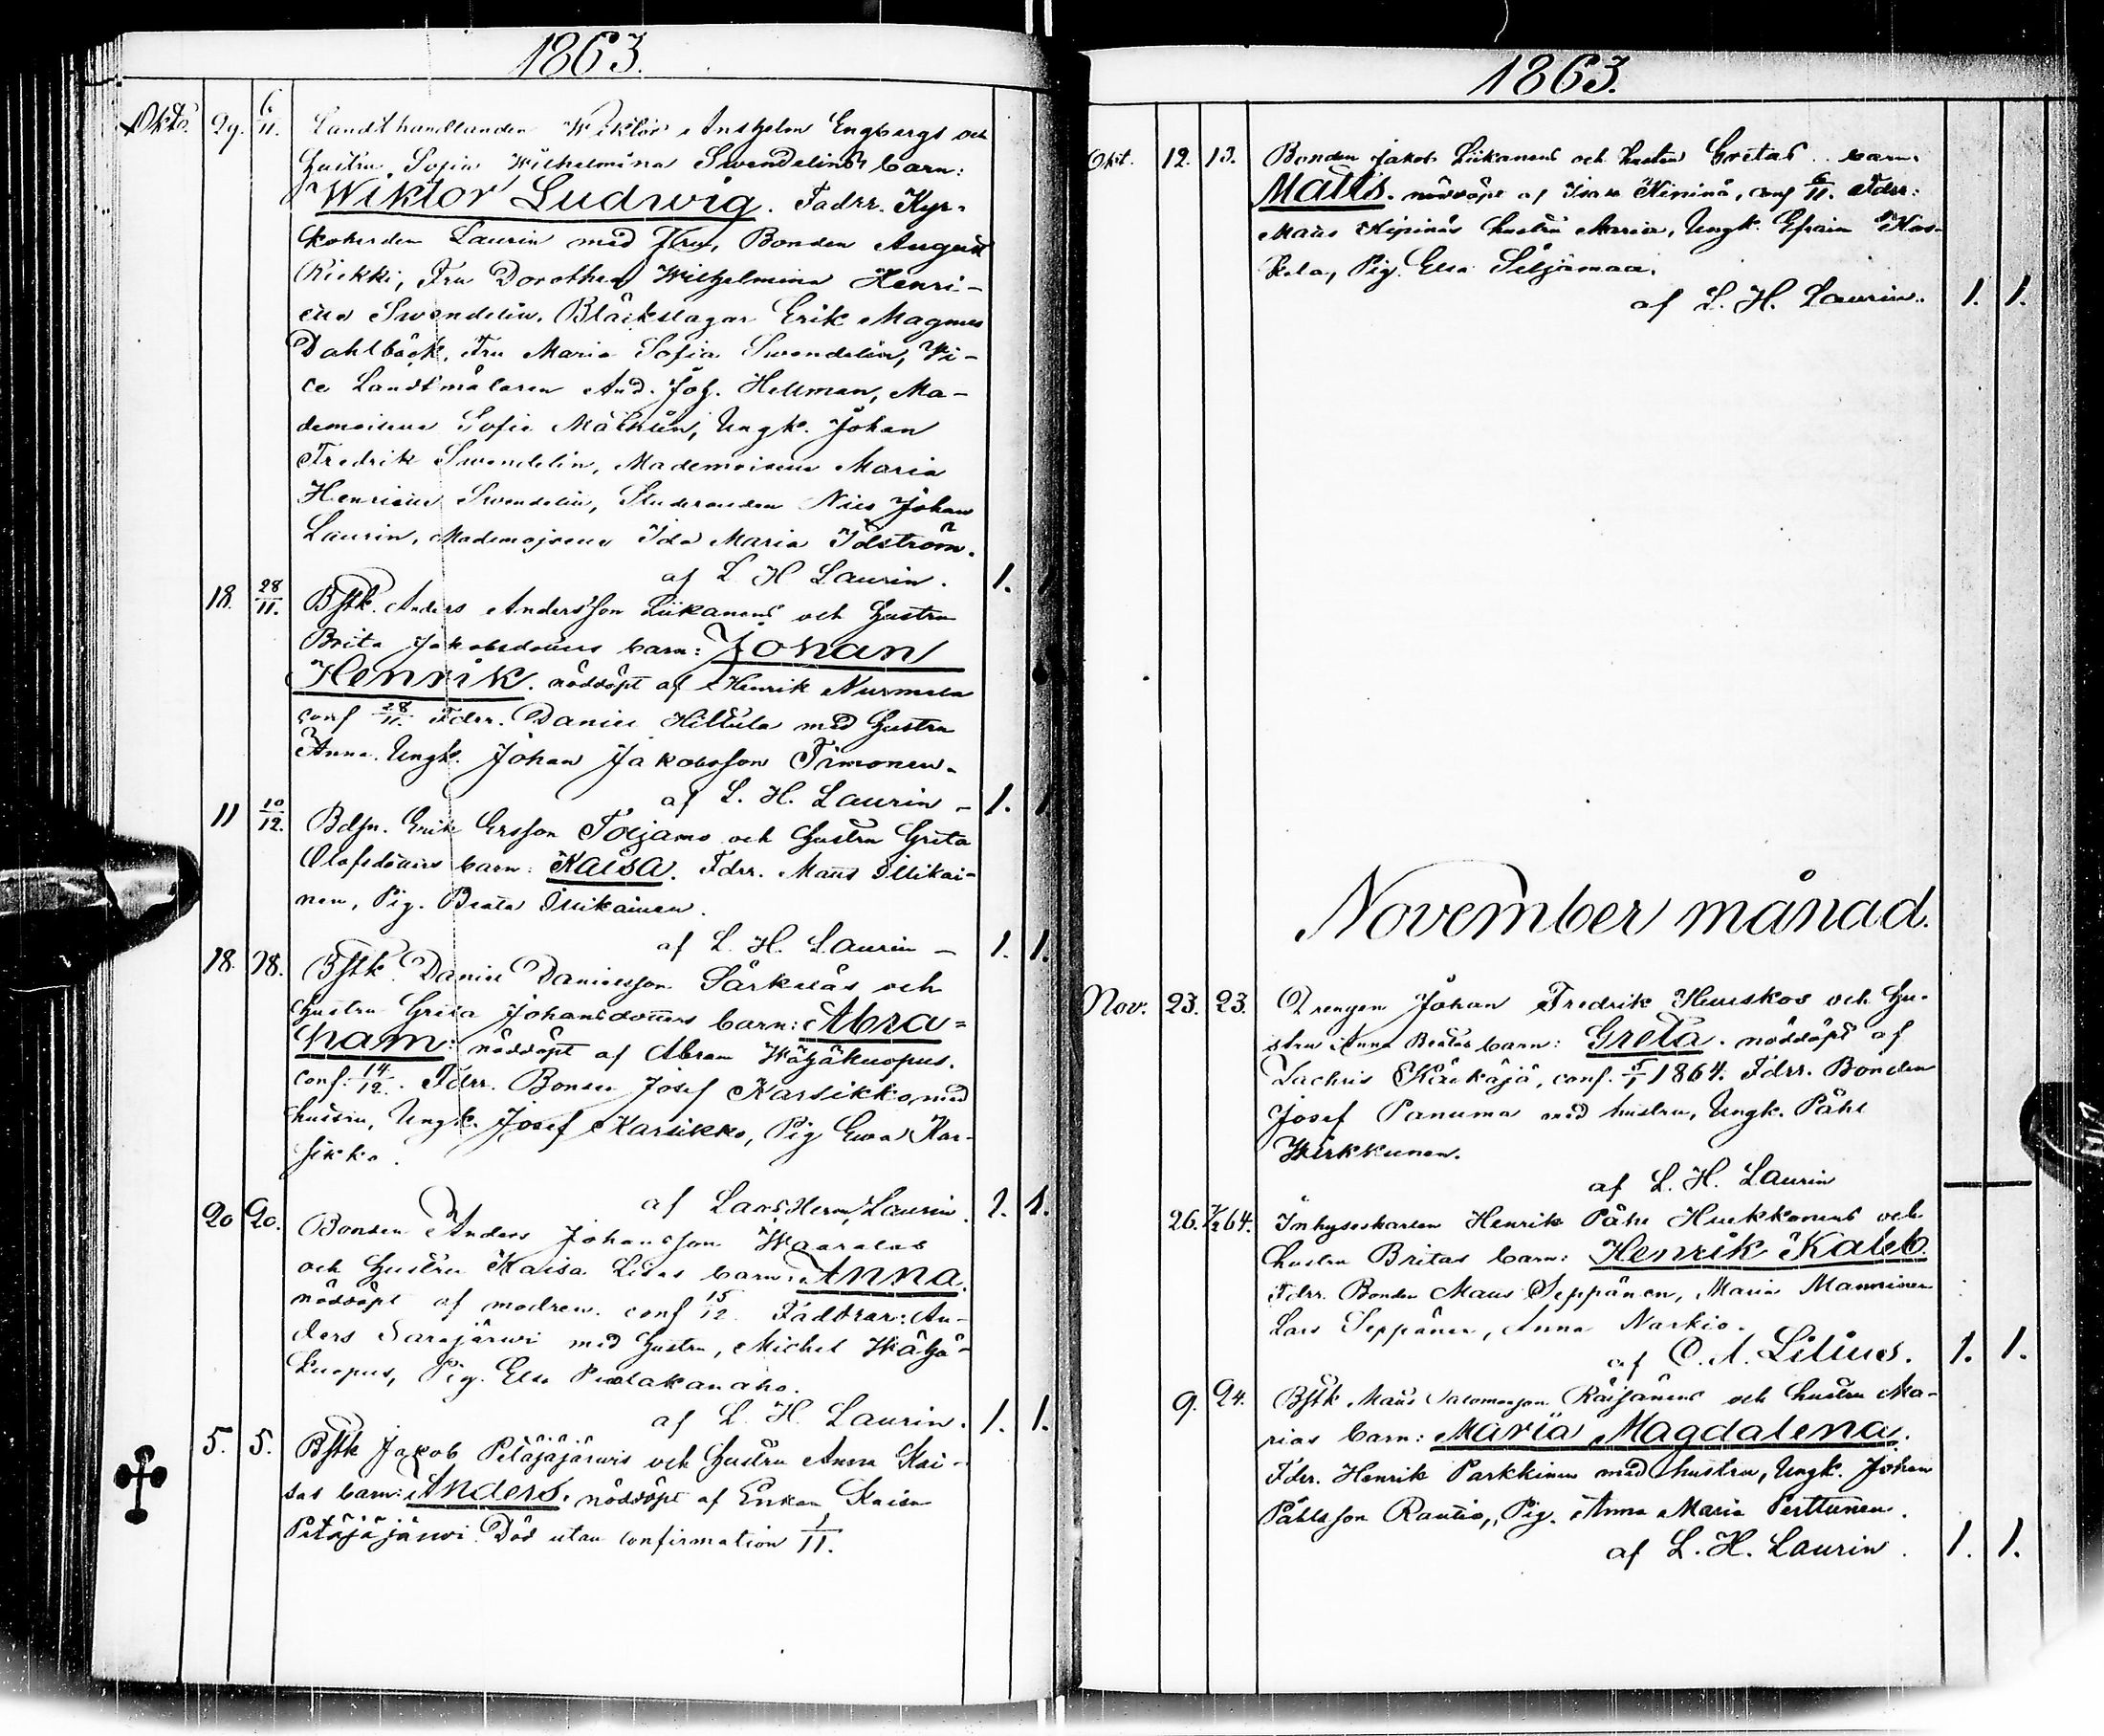 1863.
Oktb. 29. 6/11. Landthandlanden Wiktor Anshelm Engbergs och
hustru Sofia Wilhelmina Swendelins barn:
Wiktor Ludwig. Fadrr. Kyr-
koherden Laurin med Fru, Bonden August
Riekki, Fru Dorothea Wilhelmina Henri-
etta Swendelin, Bläckslagar Erik Magnus
Dahlbäck, Fru Maria Sofia Swendelin, Vi-
ce Landtmätaren And. Joh. Hellman, Ma-
demoiselle Sofie Malmn, Ungk. Johan
Fredrik Swendelin, Mademoiselle Maria
Henriette Swendelin, Studeranden Nils Johan
Laurin, Mademojselle Ida Maria Idström.
af L H Laurin. 1.
18. 28/11. Bstk. Anders Andersson Liikanens och hustru
Brita Jakobsdotters barn: Johan
Henrik. nöddöpt af Henrik Nurmela
conf 28/11. Fdrr. Daniel Hiltula med hustru
Anna. Ungk. Johan Jakobsson Timonen.
af L. H. Laurin - 1. 1
11 10/12. Bdsn. Erik Ersson Toljamo och hustru Greta
Olofsdotters barn: Kaisa. Fdrr. Matts Illikai-
nen, Pig. Beata Illikainen.
af L. H. Laurin - 1. 1.
18. 18. Bstk. Daniel Danielsson Särkeläs och
hustru Greta Johansdotters barn: Abra-
ham: nöddöpt af Abram Wähäkuopus.
conf: 14/12. Fdrr. Bonden Josef Karsikko med
hustru, Ungk. Josef Karsikko, Pig Ewa Kar-
sikko.
af Lars Herm. Laurin. 1. 1.
20 20. Bonden Anders Johansson Waaralas
och hustru Kaisa Lisas barn: Anna.
nöddöpt af modren. conf 15/12 Faddrar: An-
ders Sarajärwi med hustru, Michel Wähä-
kuopus, Pig. Elsa Puolakanaho.
af L. H. Laurin. 1. 1.
5. 5. Bstk Jakob Petäjäjärwis och hustru Anna Kai-
sas barn: Anders. nöddöpt af Enkan Kaisa
Petäjäjärwi. Död utan confirmation 1/11.
1863.
Okt. 12. 13. Bonden Jakob Liikanens och hustru Gretas barn
Matts. nöddöpt af Isak Kipinä, conf 6/11. Fdrr:
Matts Kipinäs hustru Maria, Ungk. Efraim Kos-
kela, Pig. Elsa Siljamaa.
af L. H. Laurin. 1. 1.
November månad.
Nov. 23. 23. Drengen Johan Fredrik Huuskos och hu-
stru Anna Beatas barn: Greta. nöddöpt af
Zachris Käckäjä, conf. 5/1 1864. Fdrr. Bonden
Josef Panuma med hustru, Ungk. Påhl
Wirkkunen.
af L. H. Laurin
26. 7/2 64. Inhyseskarlen Henrik Påhl Huckkonens och
hustru Britas barn: Henrik Kaleb.
Fdrr. Bonden Matts Seppänen, Maria Manninen
Lars Seppänen, Anna Narkio.
af C. A. Lilius. 1. 1.
9. 24. Bstk Matts Salomonson Räisänens och hustru Ma-
rias barn: Maria Magdalena.
Fdrr. Henrik Parkkinen med hustru, Ungk. Johan
Påhlsson Rautio, Pig. Anna Maria Perttunen.
af L. H. Laurin. 1. 1.